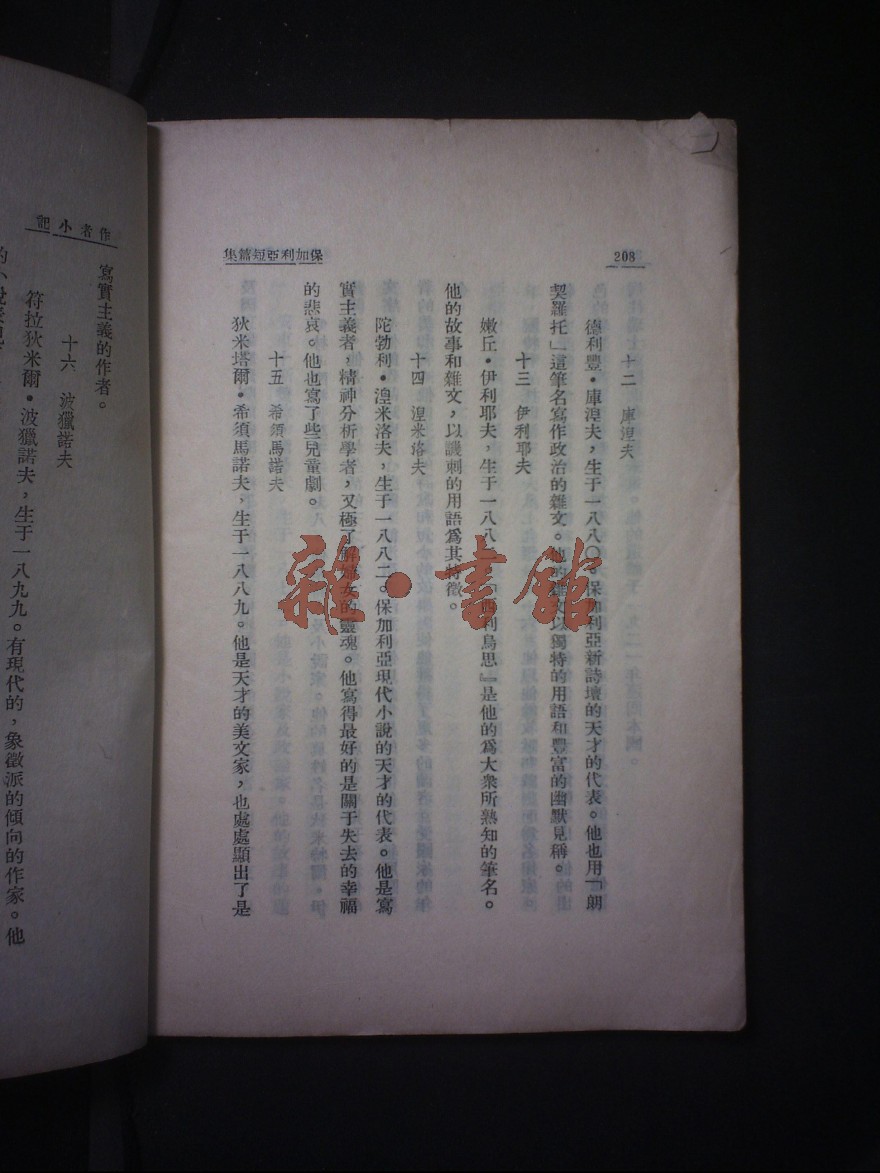 208
保加利亞短篇集
十二 庫湼夫
德利豐・庫湼夫，生于一八八〇，保加利亞新詩壇的天才的代表。他也用「朗
契羅托」這筆名寫作政治的雜文。他的雜文以獨特的用語和豐富的幽默見稱。
十三 伊利耶夫
嫩丘・伊利耶夫，生于一八八二。『西利烏思』是他的爲大衆所熟知的筆名。
他的故事和雜文，以譏刺的用語爲其特徵。
十四 湼米洛夫
陀勃利・湼米洛夫，生于一八八二。保加利亞現代小說的天才的代表。他是寫
實主義者，精神分析學者，又極了解婦女的靈魂。他寫得最好的是關于失去的幸福
的悲哀。他也寫了些兒童劇。
十五 希須馬諾夫
狄米塔爾・希須馬諾夫，生于一八八九。他是天才的美文家，也處處顯出了是
作者小記
寫實主義的作者。
十六 波獵諾夫
符拉狄米爾・波獵諾夫，生于一八九九。有現代的，象徵派的傾向的作家。他
雜・書館